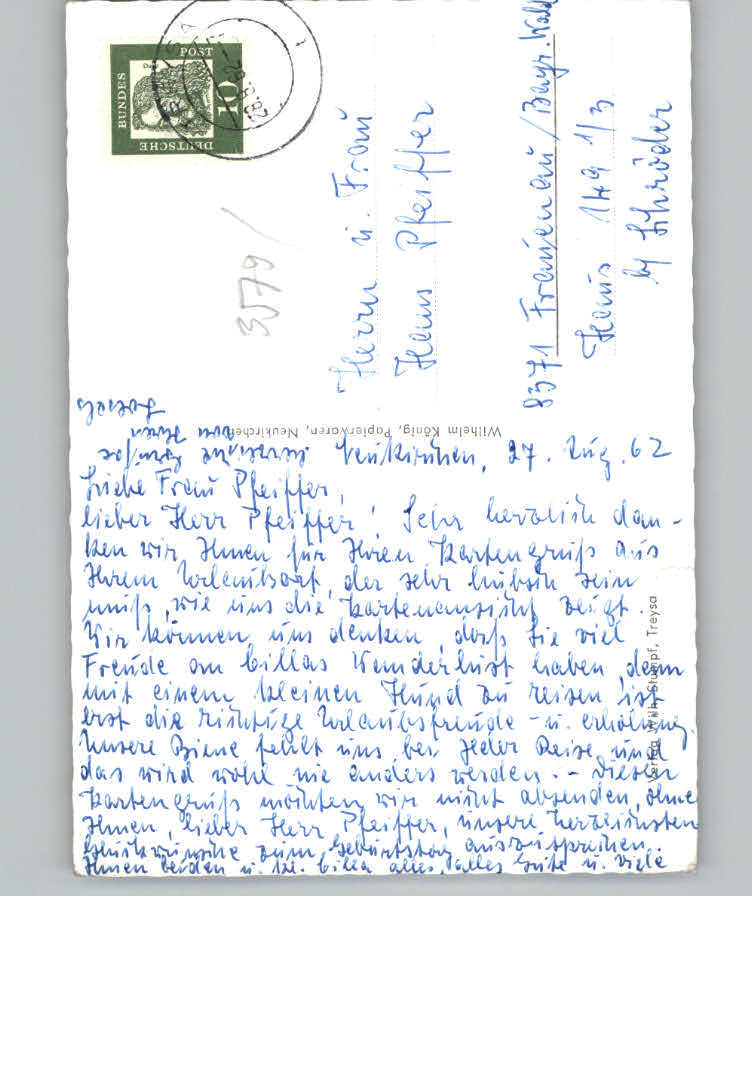 DEUTSCHE
BUNDES
POST
10
TREYSA
28.8.62
3579/
Herrn u. Frau
Hans Pfeiffer
8371 Frauenau/Bayr. Wald
Haus 149 1/3
by Schröder
Wilhelm König, Papierwaren, Neukirchen
Verlag Wilh. Stumpf, Treysa
Neukirchen, 27. Aug. 62
Liebe Frau Pfeiffer,
lieber Herr Pfeiffer! Sehr herzlich dan-
ken wir Ihnen für Ihren Kartengruß aus
Ihrem Urlaubsort, der sehr hübsch sein
muß, wie uns die Kartenansicht zeigt.
Wir können uns denken, daß Sie viel
Freude an Cillas Wanderlust haben, denn
mit einem kleinen Hund zu reisen ist
erst die richtige Urlaubsfreude - u. erholung.
Unsere Biene fehlt uns bei jeder Reise, und
das wird wohl nie anders werden. - Diesen
Kartengruß möchten wir nicht absenden, ohne
Ihnen, lieber Herr Pfeiffer, unsere herzlichsten
Glückwünsche zum Geburtstag auszusprechen.
Ihnen beiden u. kl. Cilla alles, alles Gute u. viele
herzliche Grüße
von Ihren